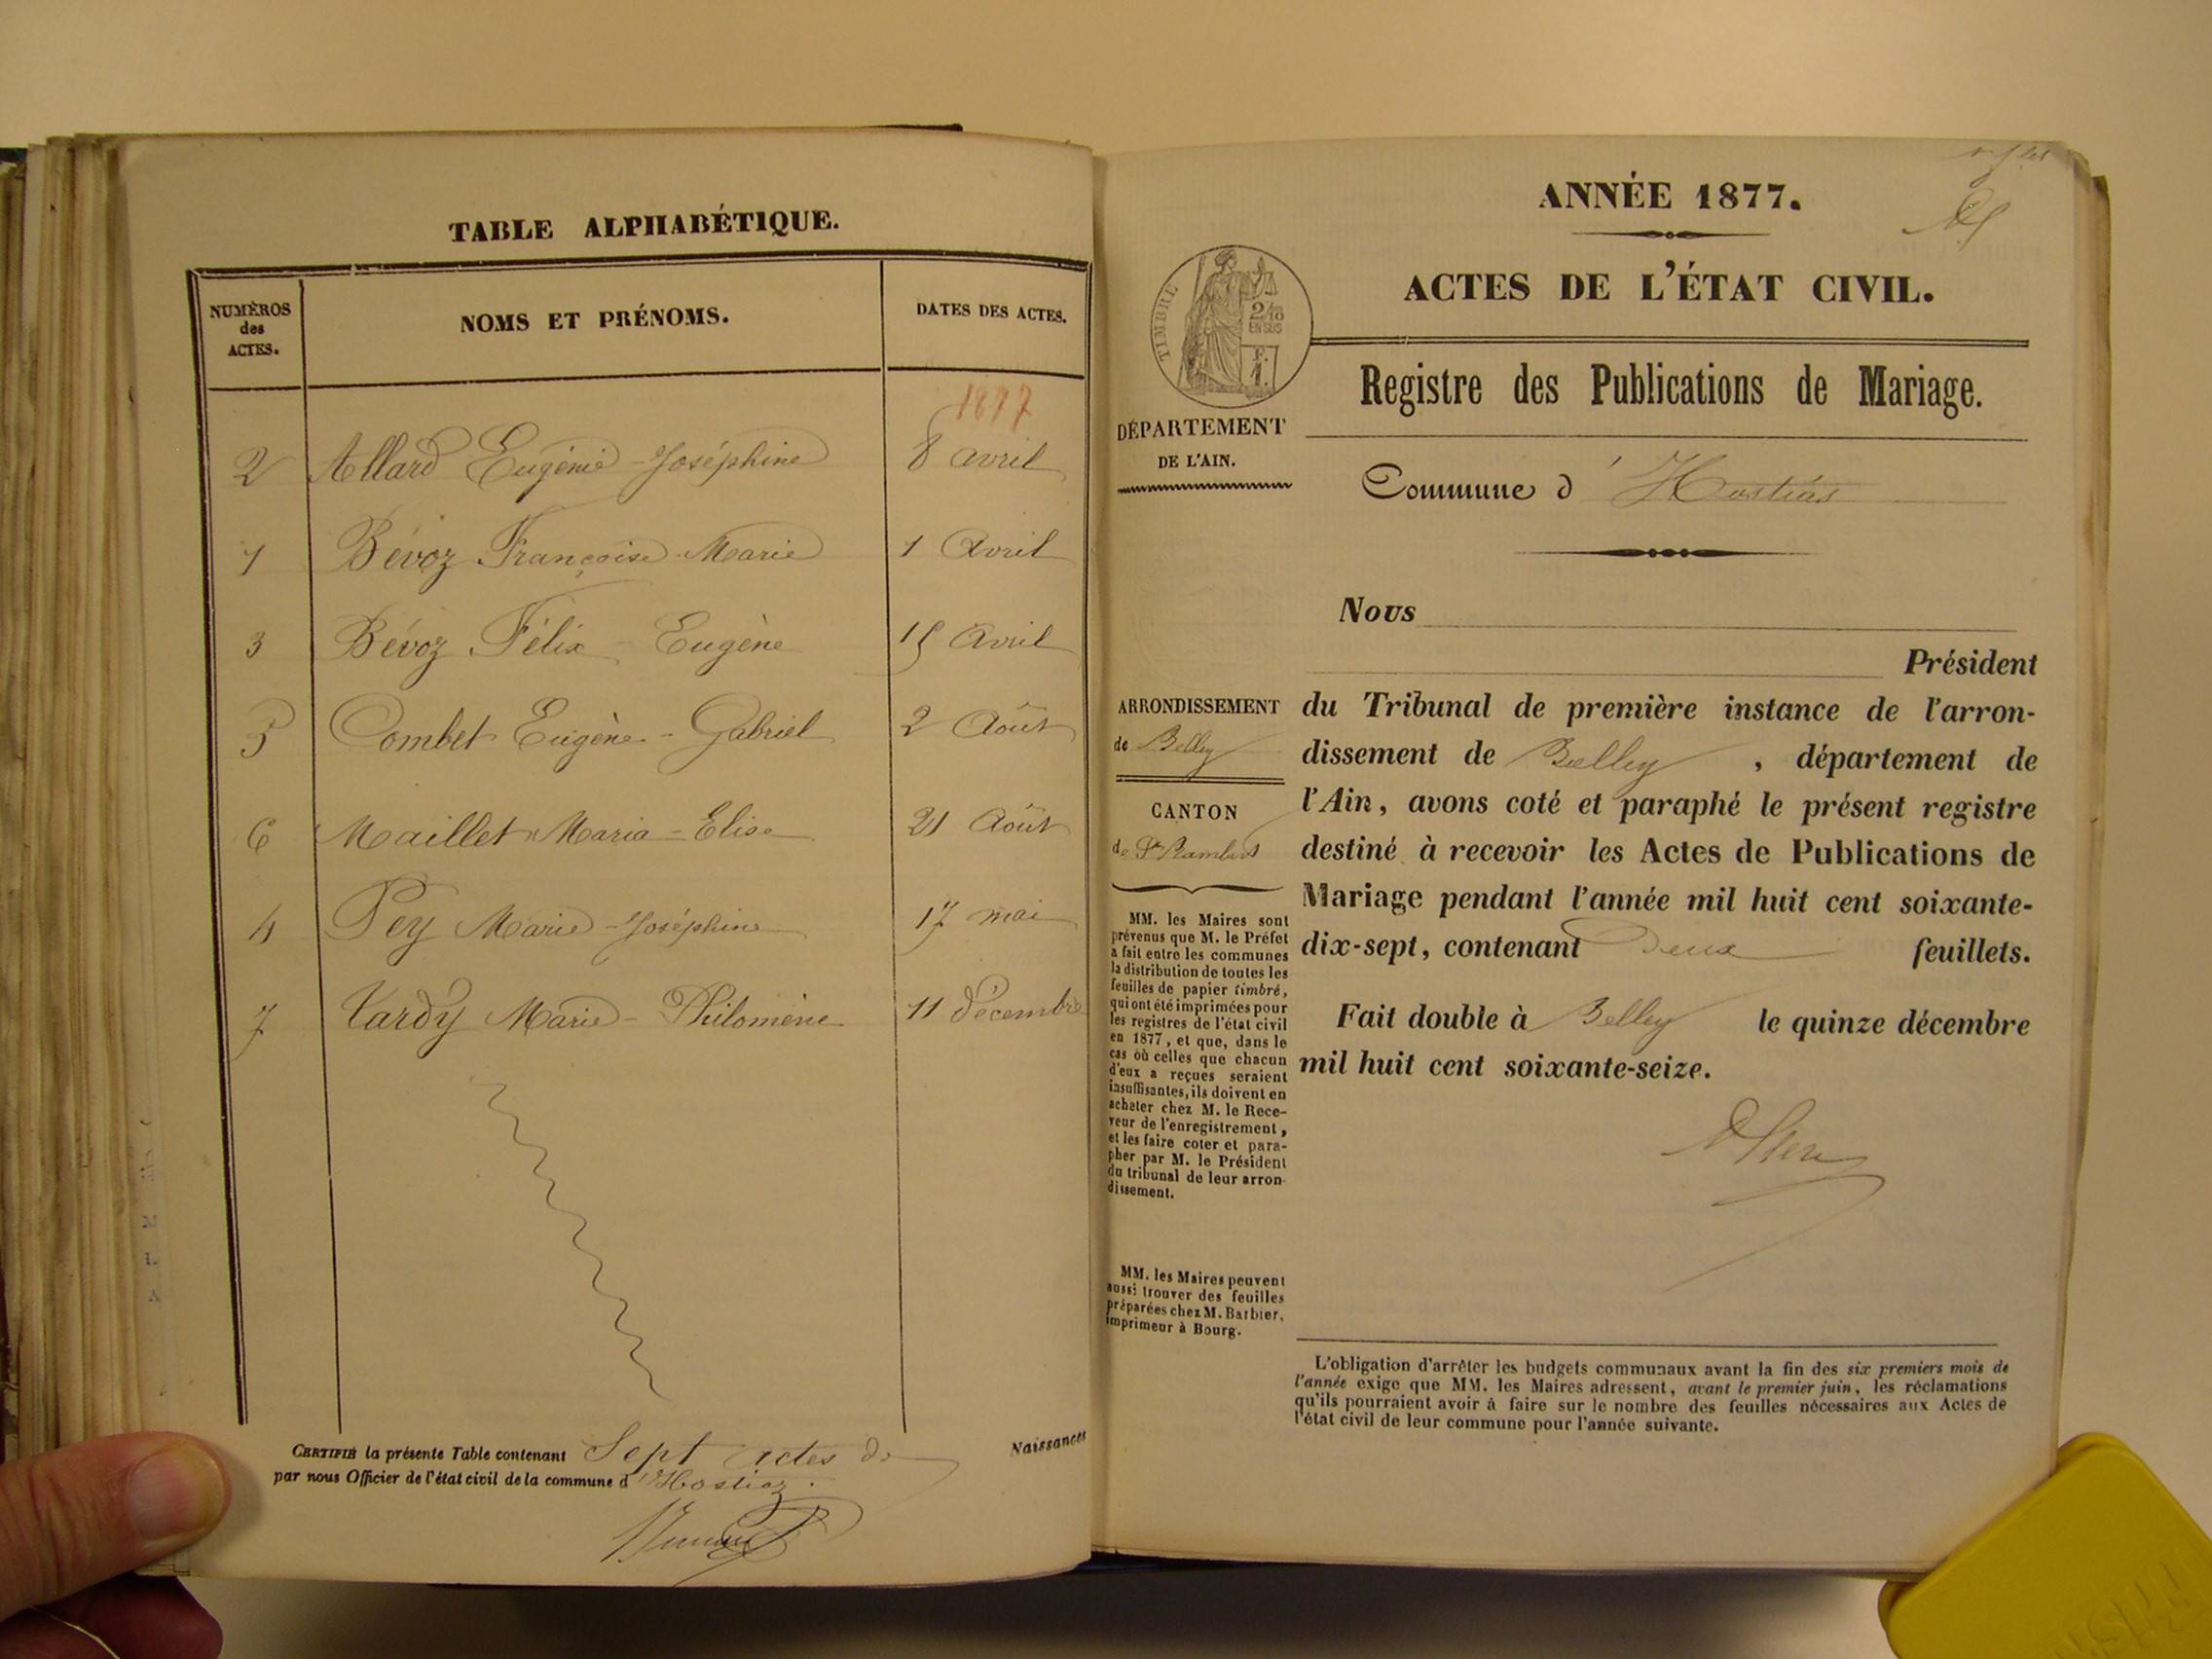 TABLE ALPHABÉTIQUE.
NUMÉROS
des
ACTES.
NOMS ET PRÉNOMS.
DATES DES ACTES.
1877
2 Allard Eugénie-Joséphine 8 avril
1 Bévoz Françoise-Marie 1 Avril
3 Bévoz Félix-Eugène 15 Avril
5 Combet Eugène-Gabriel 2 Août
6 Maillet Maria-Elise 21 Août
4 Pey Marie-Joséphine 17 mai
7 Tardy Marie-Philomène 11 décembre
CERTIFIÉ la présente Table contenant Sept actes de Naissances
par nous Officier de l'état civil de la commune d'Hostiaz.
ANNÉE 1877.
ACTES DE L'ÉTAT CIVIL.
TIMBRE
2/10
EN SUS
F.
1.
Registre des Publications de Mariage.
DÉPARTEMENT
DE L'AIN.
Commune d'Hostias
Nous
Président
ARRONDISSEMENT
de Belley
CANTON
de St Rambert
du Tribunal de première instance de l'arron-
dissement de Belley, département de
l'Ain, avons coté et paraphé le présent registre
destiné à recevoir les Actes de Publications de
Mariage pendant l'année mil huit cent soixante-
dix-sept, contenant Deux feuillets.
Fait double à Belley le quinze décembre
mil huit cent soixante-seize.
MM. les Maires sont
prévenus que M. le Préfet
a fait entre les communes
la distribution de toutes les
feuilles de papier timbré,
qui ont été imprimées pour
les registres de l'état civil
en 1877, et que, dans le
cas où celles que chacun
d'eux a reçues seraient
insuffisantes, ils doivent en
acheter chez M. le Rece-
veur de l'enregistrement,
et les faire coter et para-
pher par M. le Président
du tribunal de leur arron-
dissement.
MM. les Maires peuvent
aussi trouver des feuilles
préparées chez M. Barbier,
imprimeur à Bourg.
L'obligation d'arrêter les budgets communaux avant la fin des six premiers mois de
l'année exige que MM. les Maires adressent, avant le premier juin, les réclamations
qu'ils pourraient avoir à faire sur le nombre des feuilles nécessaires aux Actes de
l'état civil de leur commune pour l'année suivante.